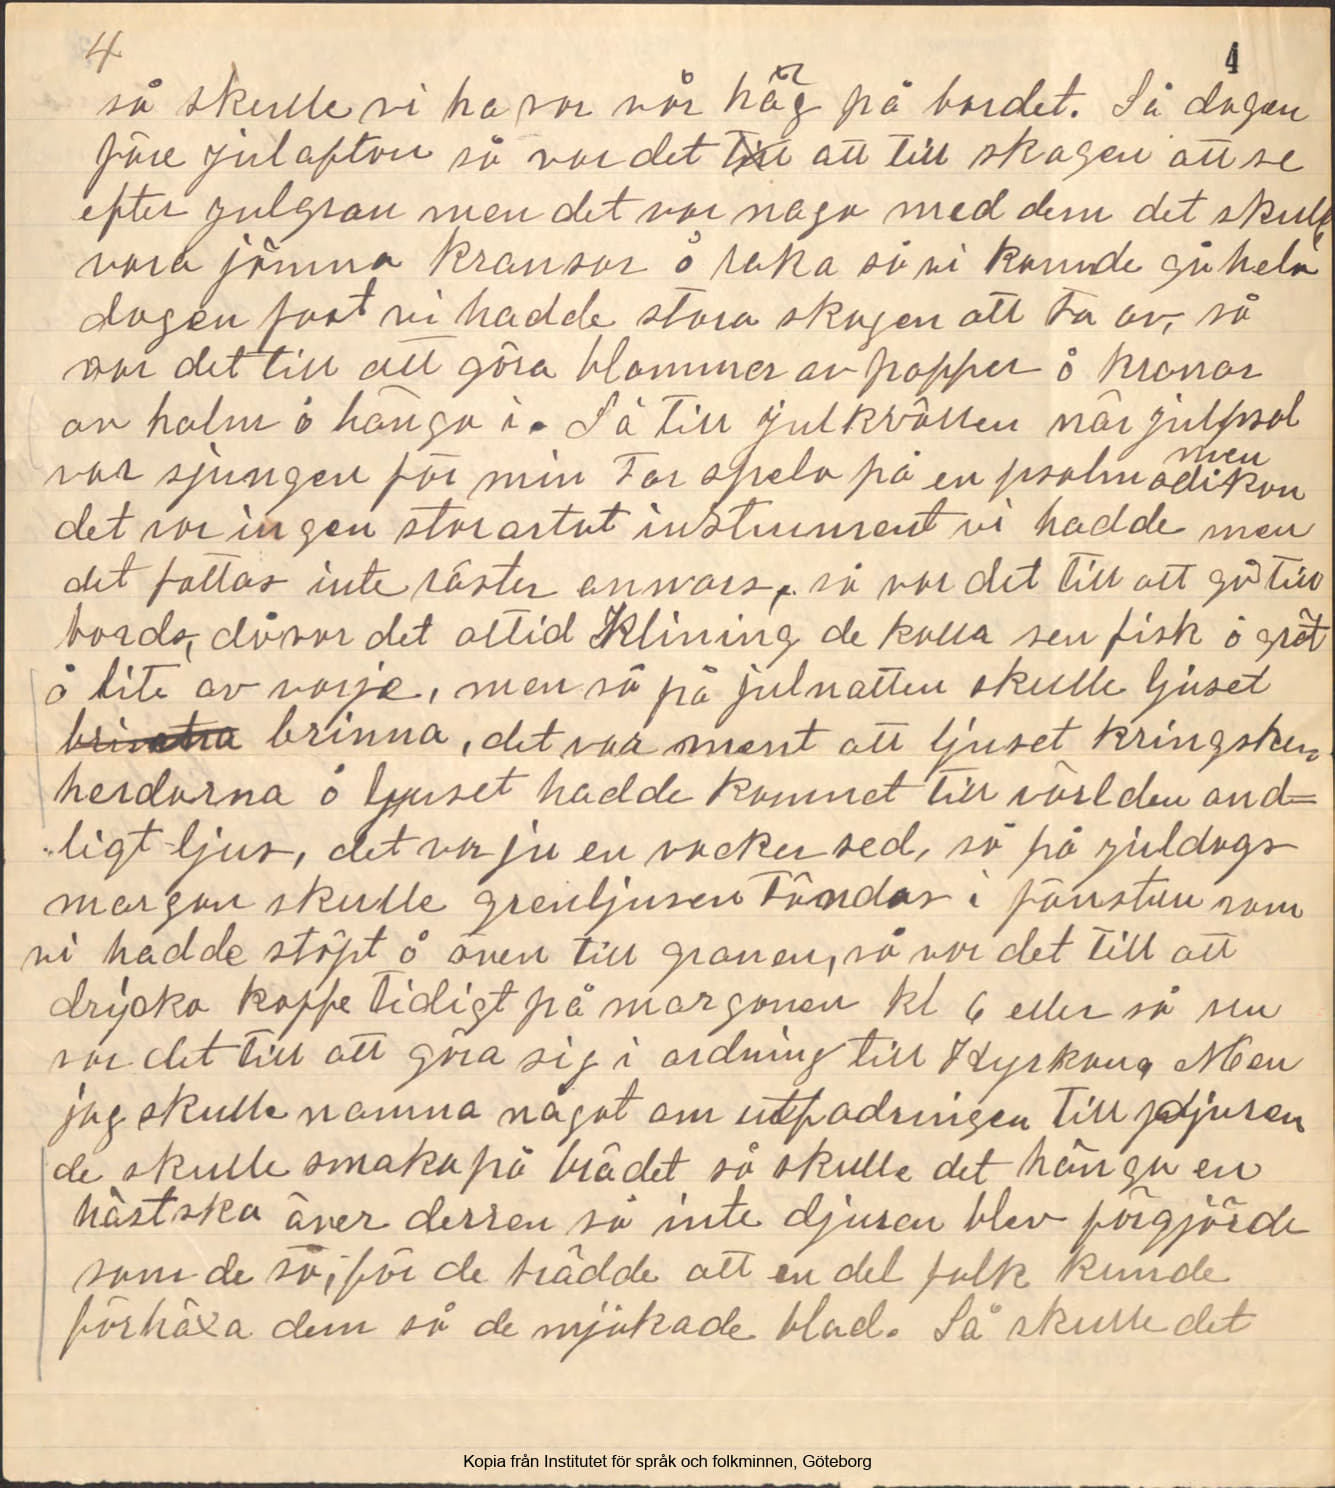 4
4
så skulle vi ha var vår hög på bordet. Så dagen
före julafton så var det till att till skogen att se
efter julgran men det var noga med dem det skulle
vara jömna kransar å raka så vi kunde gå hela
dagen fast vi hadde stora skogen att ta av, så
var det till att göra blommer av papper å kronor
av halm å hänga i. Så till julkvällen när julpsal
var sjungen för min Far spela på en psalmodikon
men
det var ingen storartat instrument vi hadde men
det fattas inte röster annars, så var det till att gå till
bords, då var det alltid Klining de kalla sen fisk å gröt
å lite av varje, men så på julnatten skulle ljuset
brinna, det var ment att ljuset kringsken
herdarna å ljuset hadde kommet till världen and=
ligt ljus, det var ju en vacker sed, så på juldags
morgon skulle grenljusen tändas i fönstren som
vi hadde stöpt å även till granen, så var det till att
dricka kaffe tidigt på morgonen kl 6 eller så nu
var det till att göra sig i ordning till Kyrkan, Men
jag skulle namna något om utfodringen till djuren
de skulle smaka på brödet så skulle det hänga en
hästsko över derren så inte djuren blev förgjörde
som de sa, för de trädde att en del folk kunde
förhäxa dem så de mjökade blod. Så skulle det
Kopia från Institutet för språk och folkminnen, Göteborg